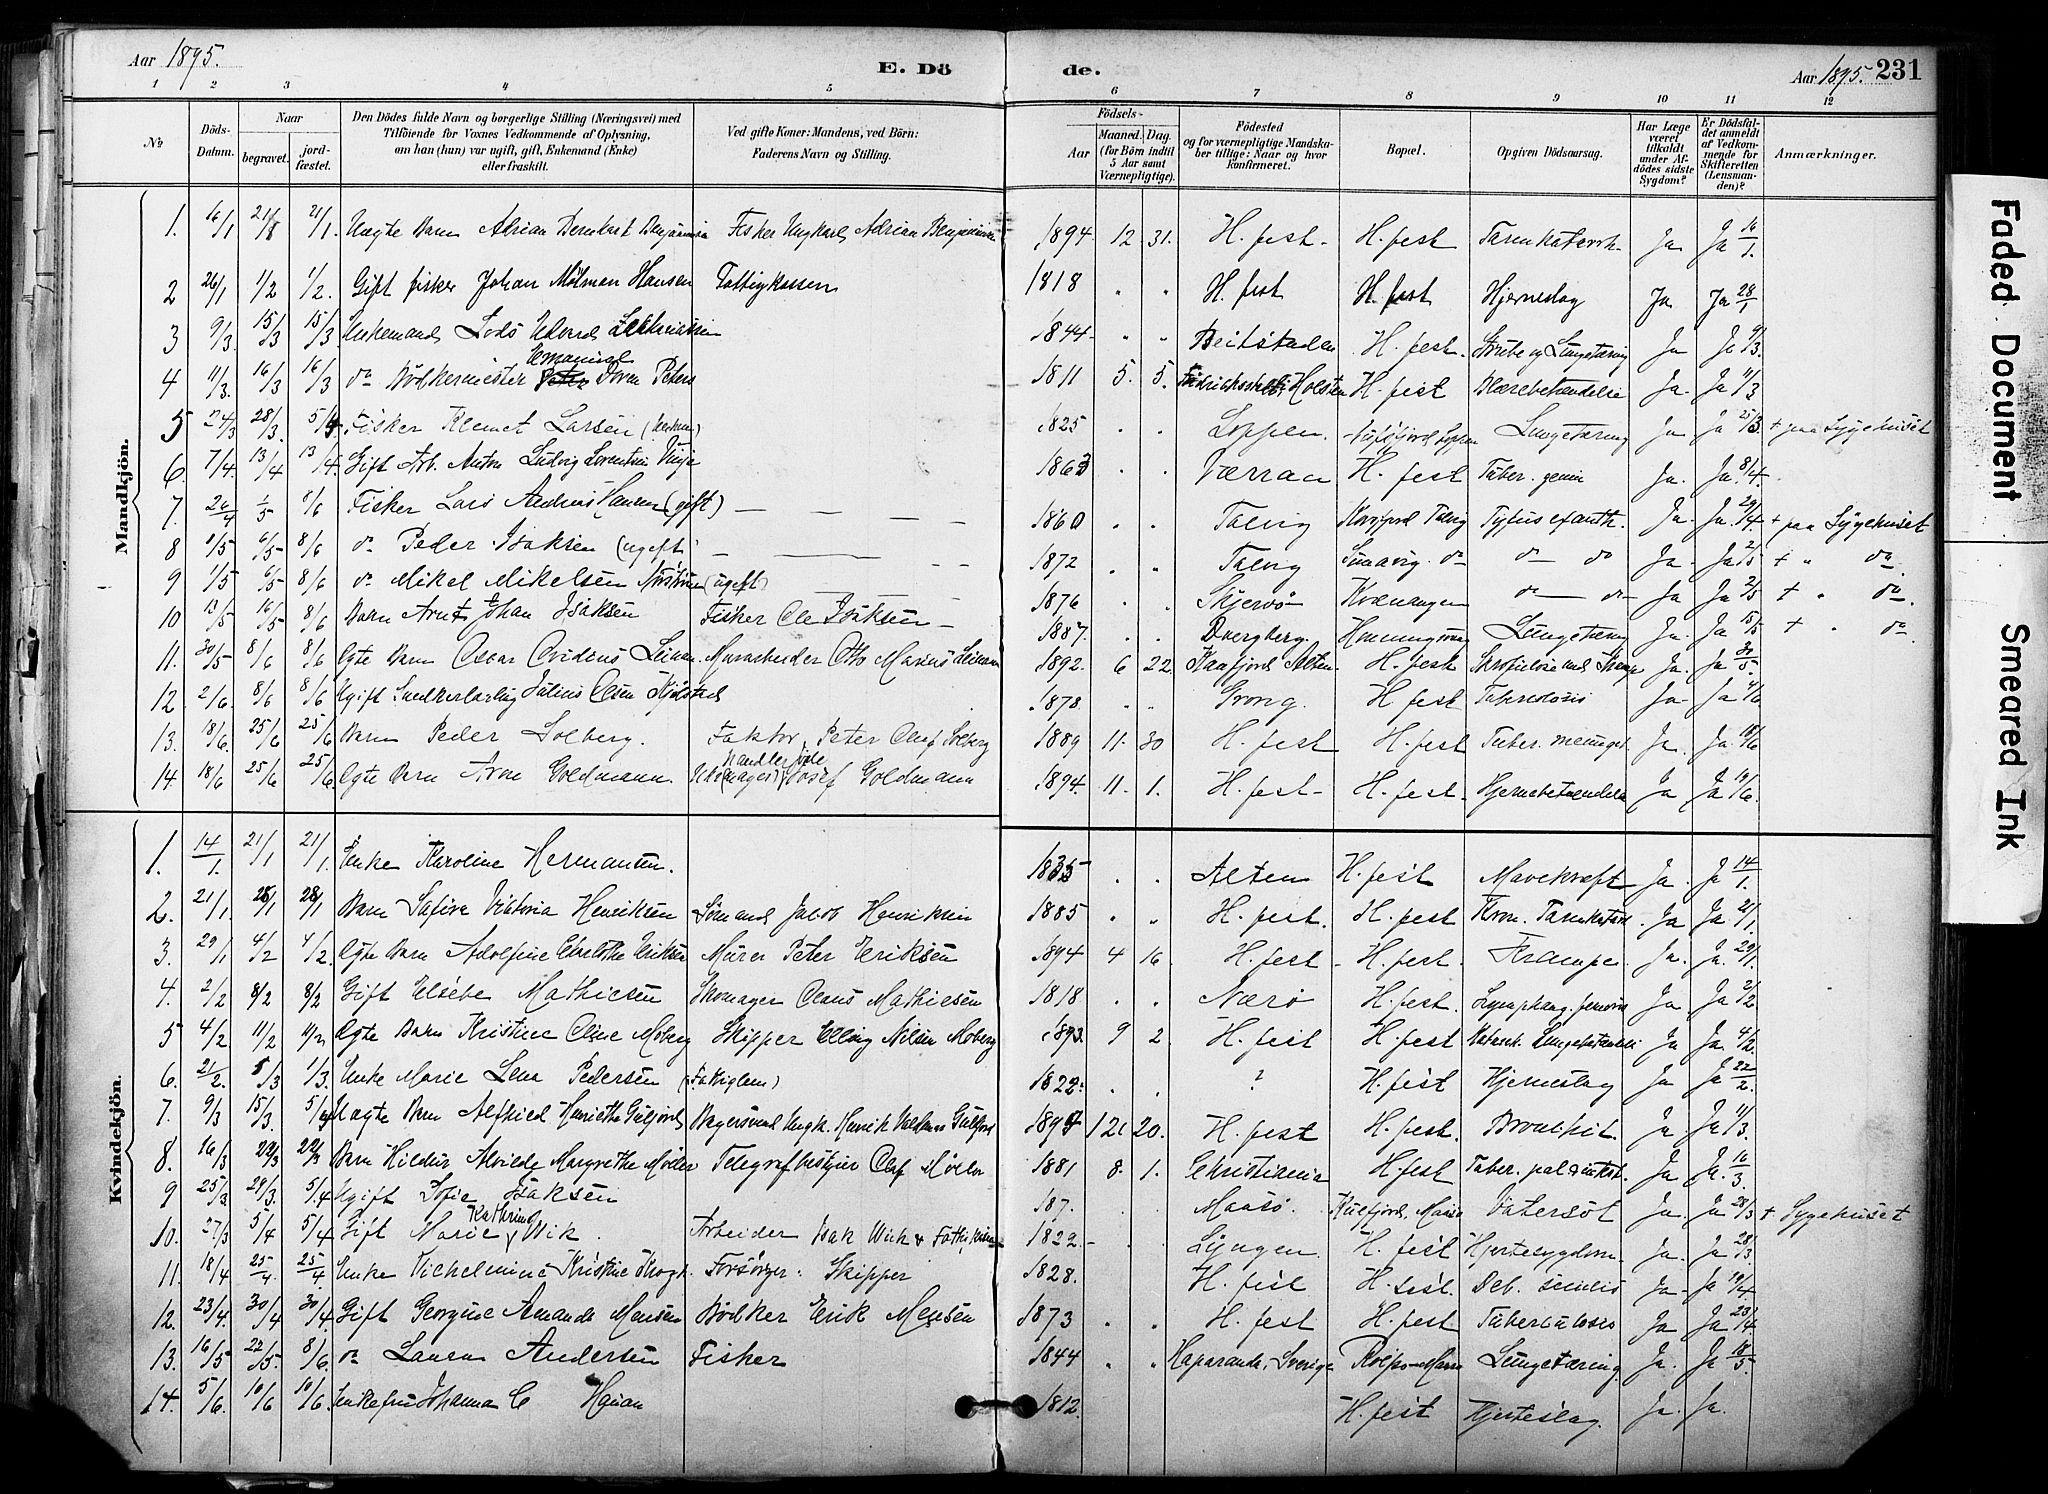 Aar 1895. E. Dö de. Aar 1895. 231
1 2 3 4 5 6 7 8 9 10 11 12
№ Döds-Datum. Naar begravet. jordfæstet. Den Dödes fulde Navn og borgerlige Stilling (Næringsvei) med Tilföiende for Voxnes Vedkommende af Oplysning, om han (hun) var ugift, gift, Enkemand (Enke) eller fraskilt. Ved gifte Koner: Mandens, ved Börn: Faderens Navn og Stilling. Födsels- Aar Maaned. Dag. (for Börn indtil 5 Aar samt Værnepligtige). Födested og for værnepligtige Mandskaber tillige: Naar og hvor konfirmeret. Bopæl. Opgiven Dödsaarsag. Har Læge været tilkaldt under Afdödes sidste Sygdom? Er Dödsfaldet anmeldt af Vedkommende for Skifteretten (Lensmanden)? Anmærkninger.
Mandkjön.
1. 16/1 21/1 21/1. Uægte Barn Adrian Bernhart Fisker Ungkarl Adrian 1894. 12. 31. H.fest. H.fest Tarmkatarrh. Ja Ja 16/1.
2 26/1 1/2 1/2. Gift fisker Johan Mølman Hansen Fattigkassen 1818 " " H.fest H.fest Hjerneslag Ja Ja 28/1
3 9/3. 15/3 15/3 Enkemand Lods Edvard 1844 " " Beitstaden H.fest. og Lungetæring Ja Ja 9/3.
4 11/3. 16/3 16/3 do Bødkermester Emanuel Dorn Peters 1811 5. 5. Holsten H.fest Blærebetændelse Ja. Ja 11/3
5 24/3 28/3. 5/4 Fisker Klemet Larsen 1825 " " Loppen. Loppen Lungetæring Ja Ja 25/3. + paa Sygehuset
6. 7/4. 13/4 13/4. Gift Arb. Anton Ludvig Lorentsen Vinje 1863 " " Værran H.fest Tuber. Ja. Ja. 8/4.
7. 26/4 1/5 8/6 Fisker Lars Andreas Hansen (gift) 1860 " " Talvig Talvig Tyfus exanth. Ja. Ja. 29/4 + paa Sygehuset
8 1/5 6/5 8/6 do Peder Isaksen (ugift) 1872 " " Talvig do do do Ja. Ja 2/5 + " do.
9 1/5 6/5 8/6 do Mikel Mikelsen (ugift) 1876 " " Skjervö Kvænangen do do Ja Ja 2/5 + " do.
10 13/5 16/5 8/6 Barn Arnt Johan Isaksen Fisker Ole Isaksen 1887. " " Dverberg. Honningsvaag Lungetæring Ja. Ja 15/5 + " do
11. 30/5 8/6 8/6 Ægte Barn Oscar Ovidius Murarbeider Otto Marius 1892. 6 22. Kaafjord Alten H.fest Ja. Ja 30/5.
12 2/6. 8/6 8/6 Ugift Snedkerlærling Julius Olsen 1878. " " Grong. H.fest Tuberculosis Ja Ja 4/6
13. 18/6. 25/6 25/6 Barn Peder Solberg. Faktor Peter Olaf Solberg 1889 11. 30 H.fest H.fest Tuber. meninget. Ja. Ja 18/6
14. 18/6 25/6 25/6. Ægte Barn Aron Goldmann. handler jöde Josef Goldmann 1894. 11. 1. H.fest H.fest. Hjernebetændelse Ja Ja 19/6.
Kvindekjön.
1. 14/1. 21/1 21/1. Enke Karoline Hermansen. 1835 " " Alten H.fest Mavekræft Ja. Ja 14/1.
2. 21/1. 28/1 28/1 Barn Safira Viktoria Henriksen Sömand Jakob Henriksen 1885 " " H.fest. H.fest Kron. Tarmkatarrh. Ja Ja 21/1.
3. 29/1 4/2 4/2. Ægte Barn Adolfine Charlotte Eriksen Murer Peter Eriksen 1894 4 16 H.fest H.fest. Krampe. Ja. Ja. 29/1.
4. 2/2 8/2 8/2 Gift Elsebe Mathiesen Skomager Claus Mathiesen 1818 " " Nærö H.fest. Ja Ja 2/2
5 4/2 11/2 11/2 Ægte Barn Kristine Oline Moberg Skipper Elling Nilsen Moberg 1893. 9 2 H.fest H.fest Katarrh. Lungebetændelse Ja Ja. 4/2
6. 21/2. 1/3 1/3. Enke Marie Lena Pedersen (Fattiglem) 1822. " " ? H.fest Hjerneslag Ja Ja 22/2.
7. 9/3 15/3. 5/4 Uægte Barn Alfhild Henriette Bagersvend Ungk. Henrik 1894 12. 20. H.fest H.fest. Bronchit. Ja Ja 11/3.
8. 16/3 22/3 22/3 Barn Hildur Alvilde Margrethe Møller Telegrafbestyrer Olaf Møller 1881 8. 1. Christiania H.fest Tuber. Ja Ja. 16/3.
9 25/3 29/3. 5/4 Ugift Sofie Isaksen 187. Maasö. Vatersot Ja. Ja 28/3 + Sygehuset
10. 27/3 5/4 5/4 Gift Marie Kathrine Wik. Arbeider Isak Wik 1822. Lyngen. H.fest Hjertesygdom Ja. Ja 28/3
11. 18/4 25/4. 25/4 Enke Vilhelmine Kristine Krogh. Forsörger: Skipper 1828. H.fest H.fest. Deb. senilis Ja. Ja 19/4.
12. 23/4. 30/4 30/4 Gift Georgine Amanda Monsen Bödker Erik Monsen 1873 " " H.fest H.fest Tuberculosis Ja Ja 23/4
13. 16/5 22/5. 8/6. do Laura Andersen Fisker 1844 " " Haparanda, Sverige Lungetæring. Ja. Ja 18/5
14. 5/6. 10/6 10/6 Enkefru Johanna C 1812. H.fest Hjerteslag. Ja. Ja.
Faded Document Smeared Ink